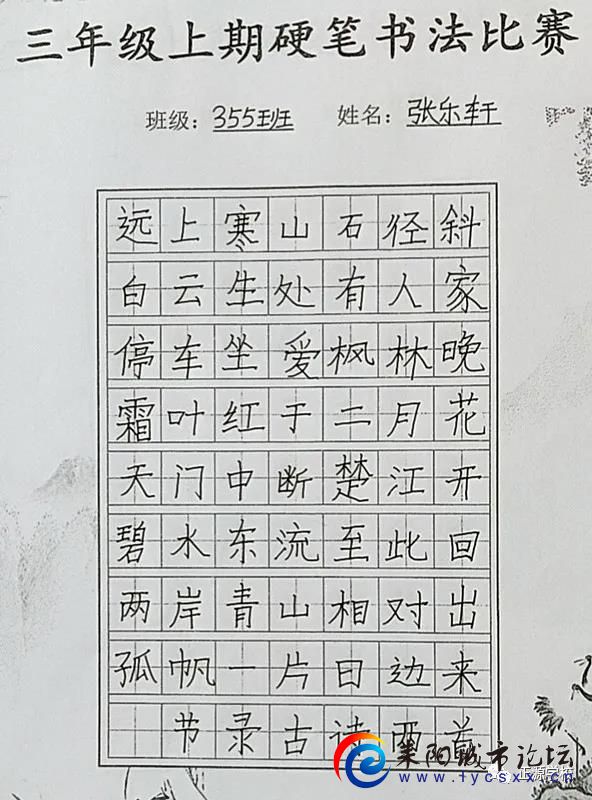 三年级上期硬笔书法比赛
班级：355班 姓名：张乐轩
远上寒山石径斜
白云生处有人家
停车坐爱枫林晚
霜叶红于二月花
天门中断楚江开
碧水东流至此回
两岸青山相对出
孤帆一片日边来
节录古诗两首
耒阳城市论坛
www.lycsxx.cn
正源学校